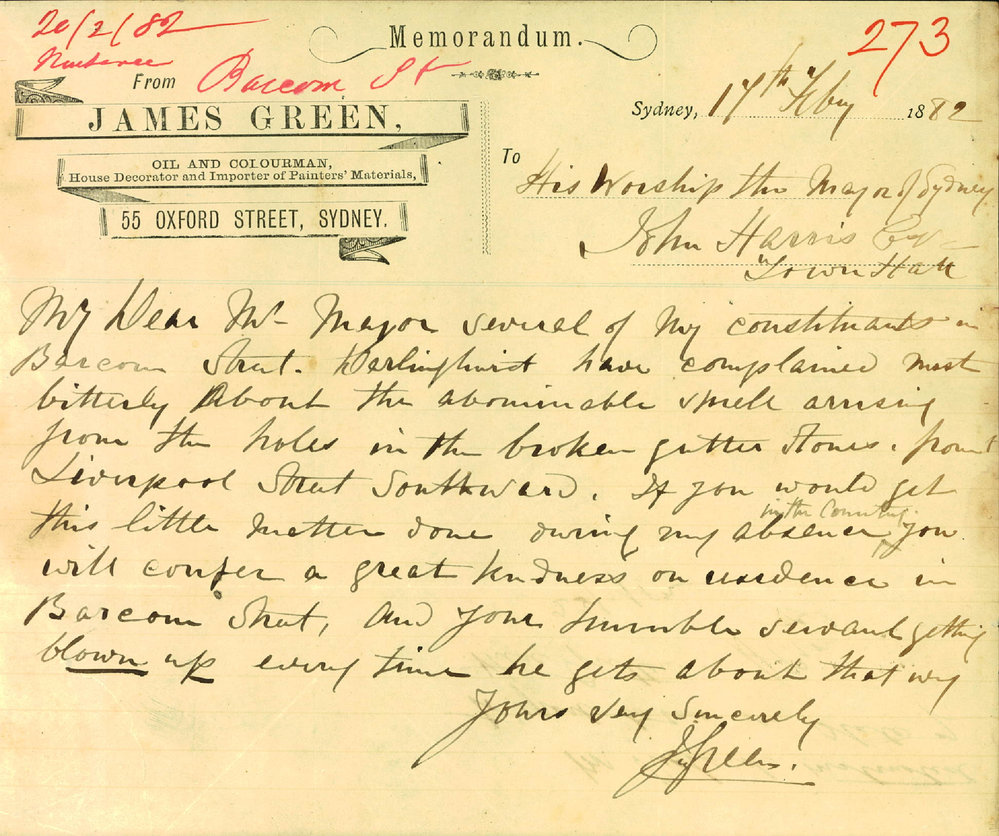 20/2/82
Nuisance
Barcom St
273
Memorandum.
From
JAMES GREEN,
OIL AND COLOURMAN,
House Decorator and Importer of Painters' Materials,
55 OXFORD STREET, SYDNEY.
Sydney, 17th Feby 1882
To
His Worship the Mayor of Sydney
John Harris Esqr
Town Hall
My Dear Mr Mayor several of my constituants in
Barcom Street. Darlinghurst have complained most
bitterly About the abominable smell arising
from the holes in the broken gutter stones. from
Liverpool Street Southward. If you would get
this little matter done during my absence in the Country you
will confer a great kindness on residence in
Barcom Street, and your humble servant getting
blown up every time he gets about that way
Yours very sincerely
J Green.